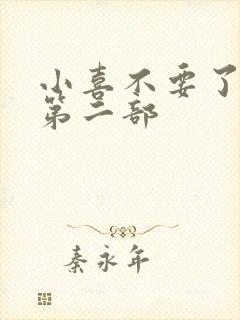 小喜不要了
第二部
秦永年